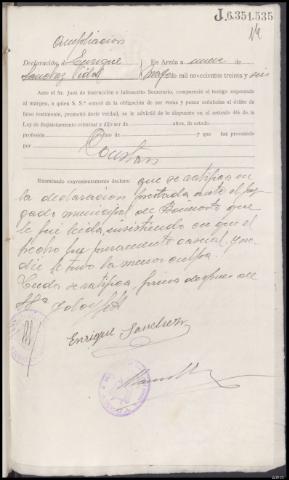 J.6.351.535
Ampliacion
Declaración de Enrique
Sanchez Vidal
En Arzúa a nueve de
Mayo de mil novecientos treinta y seis
Ante el Sr. Juez de instrucción e infrascrito Secretario, compareció el testigo expresado
al margen, a quien S. S.ª enteró de la obligación de ser veraz y penas señaladas al delito de
falso testimonio, prometió decir verdad; se le advirtió de lo dispuesto en el artículo 446 de la
Ley de Enjuiciamiento criminal y dijo ser de años, de estado
profesión y que fué procesado
por Constan
Examinado convenientemente declara: que se ratifica en
la declaracion prestada ante el Juz
gado municipal de Boimorto que
le fue leida, insistiendo en que el
hecho fue puramente casual, y na
die tuvo la menor culpa.
Leida se ratifica, firma despues de
SSª y doy fe
Enrique Sanchez